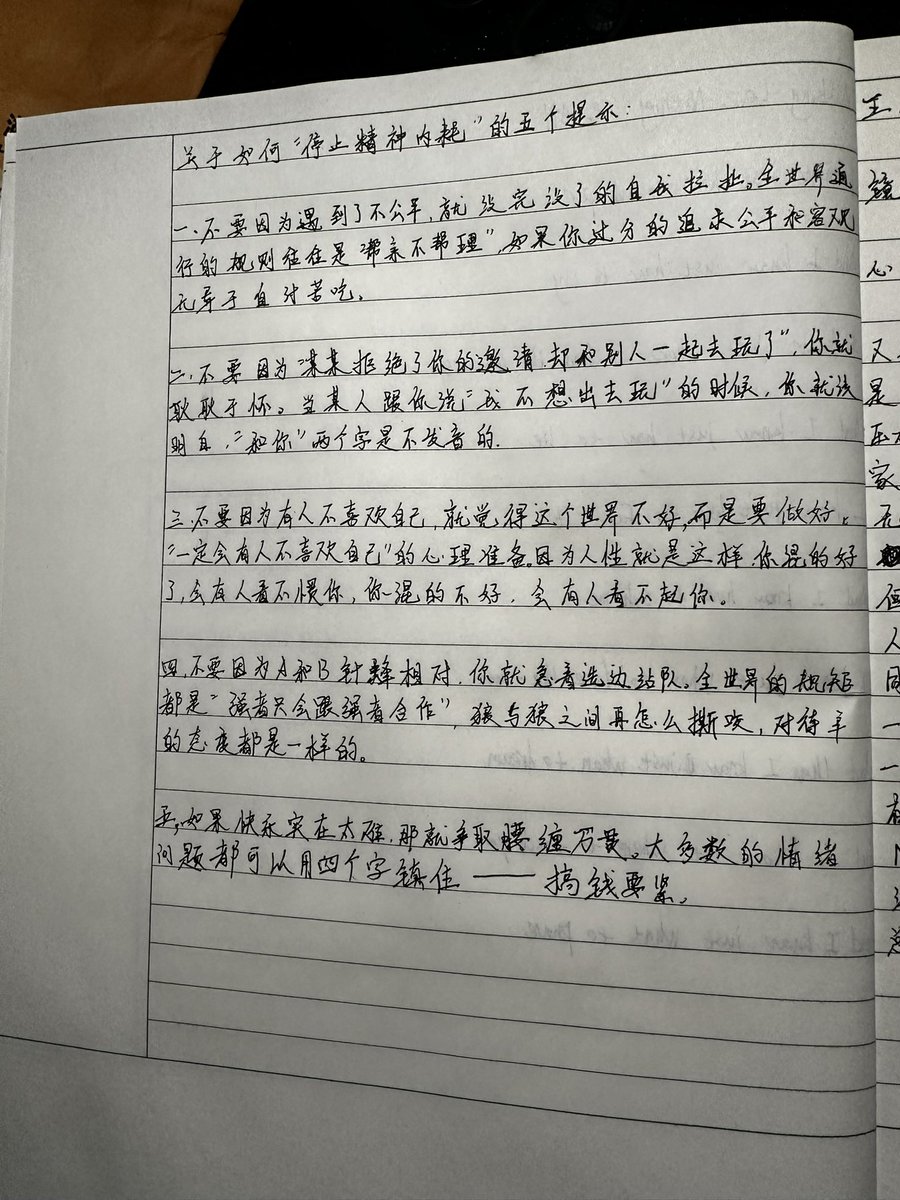 关于如何“停止精神内耗”的五个提示：
一.不要因为遇到了不公平，就没完没了的自我拉扯。全世界通
行的规则往往是“帮亲不帮理”，如果你过分的追求公平和客观
无异于自讨苦吃。
二.不要因为“某某拒绝了你的邀请，却和别人一起去玩了”，你就
耿耿于怀。当某人跟你说“我不想出去玩”的时候，你就该
明白，“和你”两个字是不发音的.
三.不要因为有人不喜欢自己，就觉得这个世界不好，而是要做好
“一定会有人不喜欢自己”的心理准备。因为人性就是这样，你混的好
了，会有人看不惯你，你混的不好，会有人看不起你。
四.不要因为A和B针锋相对，你就急着选边站队。全世界的规矩
都是“强者只会跟强者合作”，狼与狼之间再怎么撕咬，对待羊
的态度都是一样的。
五.如果快乐实在太难，那就争取腰缠万贯。大多数的情绪
问题都可以用四个字镇住——搞钱要紧。